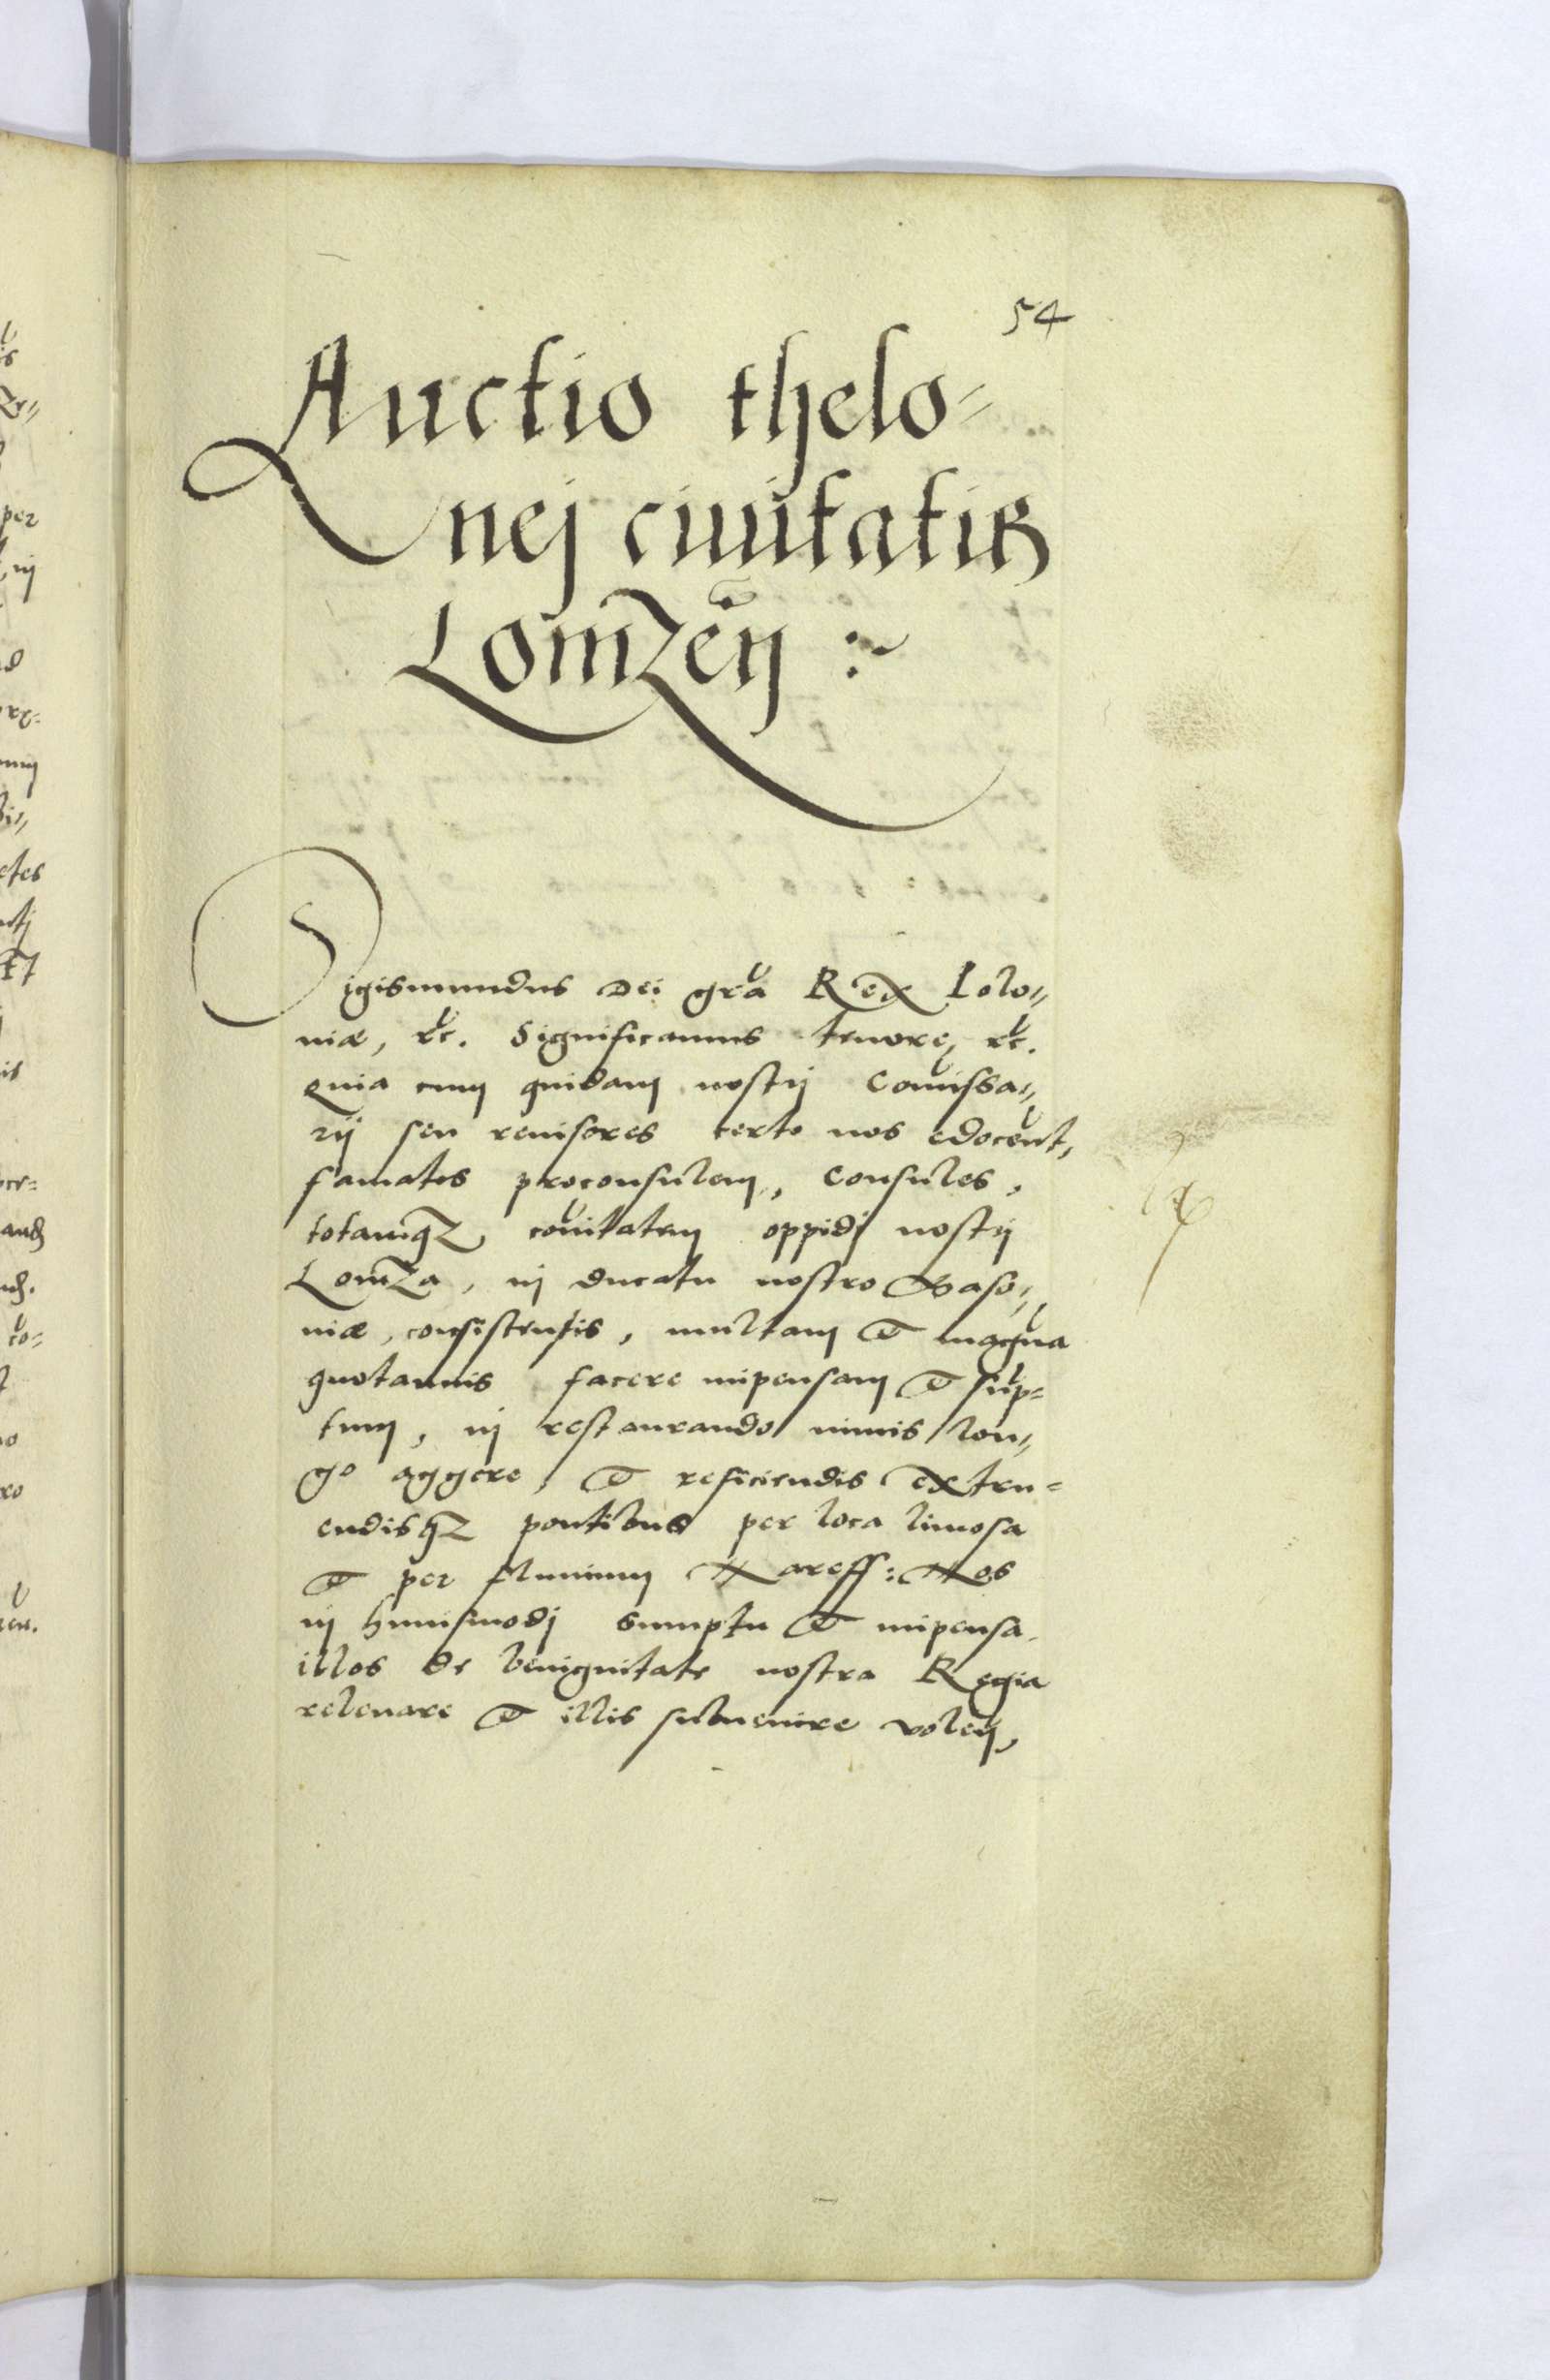 54
Auctio thelo-
nej ciuitatis
Lomzen̄ :~
Sigismundus Dei gr̃a Rex Polo=
niæ, &c. Significamus tenore, &c.
Quia cum quidam nostri Com̃issa=
rij seu reuisores certo nos edocent,
famatos proconsulem, Consules,
totamqz com̃itatem oppidj nostrj
Lomza, in ducatu nostro Maso=
niæ, consistentis, multam et magna
quotannis facere impensam et sup=
tum, in restaurando nimis lon=
go aggere, et reficiendis extru=
endisqz pontibus per loca limosa
et per fluuium Nareff: Nos
in huiusmodj sumptu et impensa
illos de benignitate nostra Regia
releuare et illis subuenire volen̄,